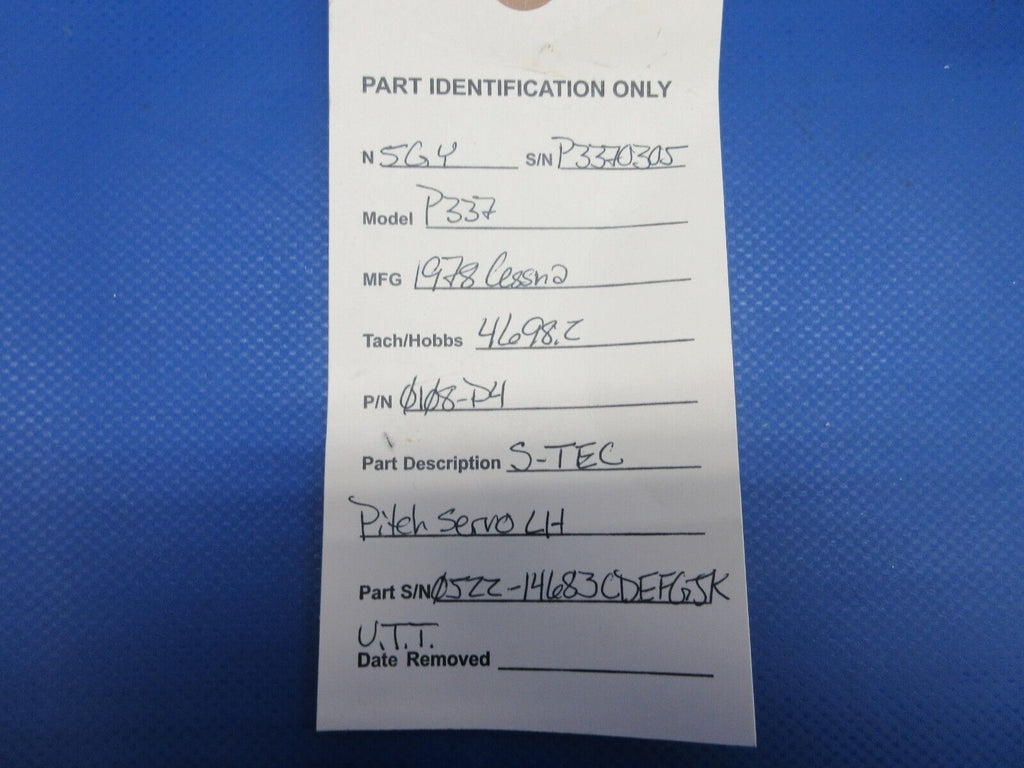 PART IDENTIFICATION ONLY
N 5GY S/N P3370305
Model P337
MFG 1978 Cessna
Tach/Hobbs 4698.2
P/N 0108-P4
Part Description S-TEC
Pitch Servo LH
Part S/N 0522-14683CDEFGJK
U.T.T.
Date Removed